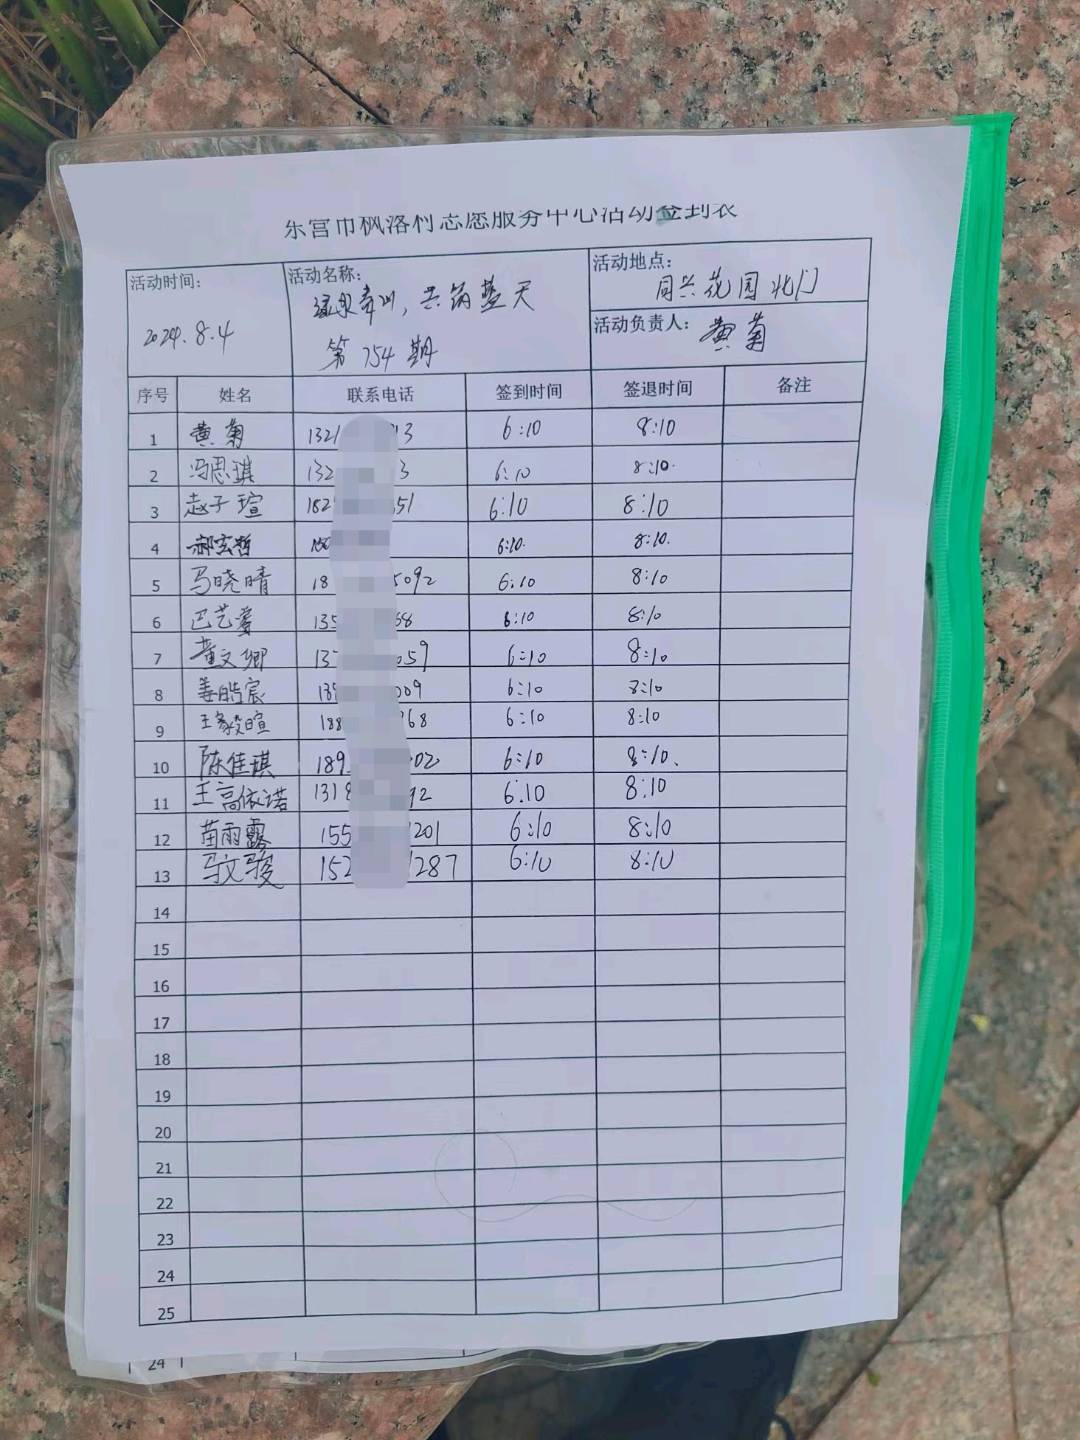 东营市枫洛利志愿服务中心活动签到表
活动时间: 活动名称: 活动地点:
2024.8.4 共筑蓝天 同兴花园北门
第754期 活动负责人: 黄菊
序号 姓名 联系电话 签到时间 签退时间 备注
1 黄菊 1321 13 6:10 8:10
2 冯思琪 132 3 6:10 8:10.
3 赵子瑄 182 51 6:10 8:10
4 郝宏哲 6:10. 8:10.
5 马晓晴 18 5092 6:10 8:10
6 巴艺爱 135 68 6:10 8:10
7 董文卿 137 059 6:10 8:10
8 姜皓宸 009 6:10 8:10
9 王毅暄 188 968 6:10 8:10
10 陈佳琪 189 02 6:10 8:10、
11 王高依诺 1318 92 6:10 8:10
12 苗雨露 155 1201 6:10 8:10
13 马文骏 152 1287 6:10 8:10
14
15
16
17
18
19
20
21
22
23
24
25
24